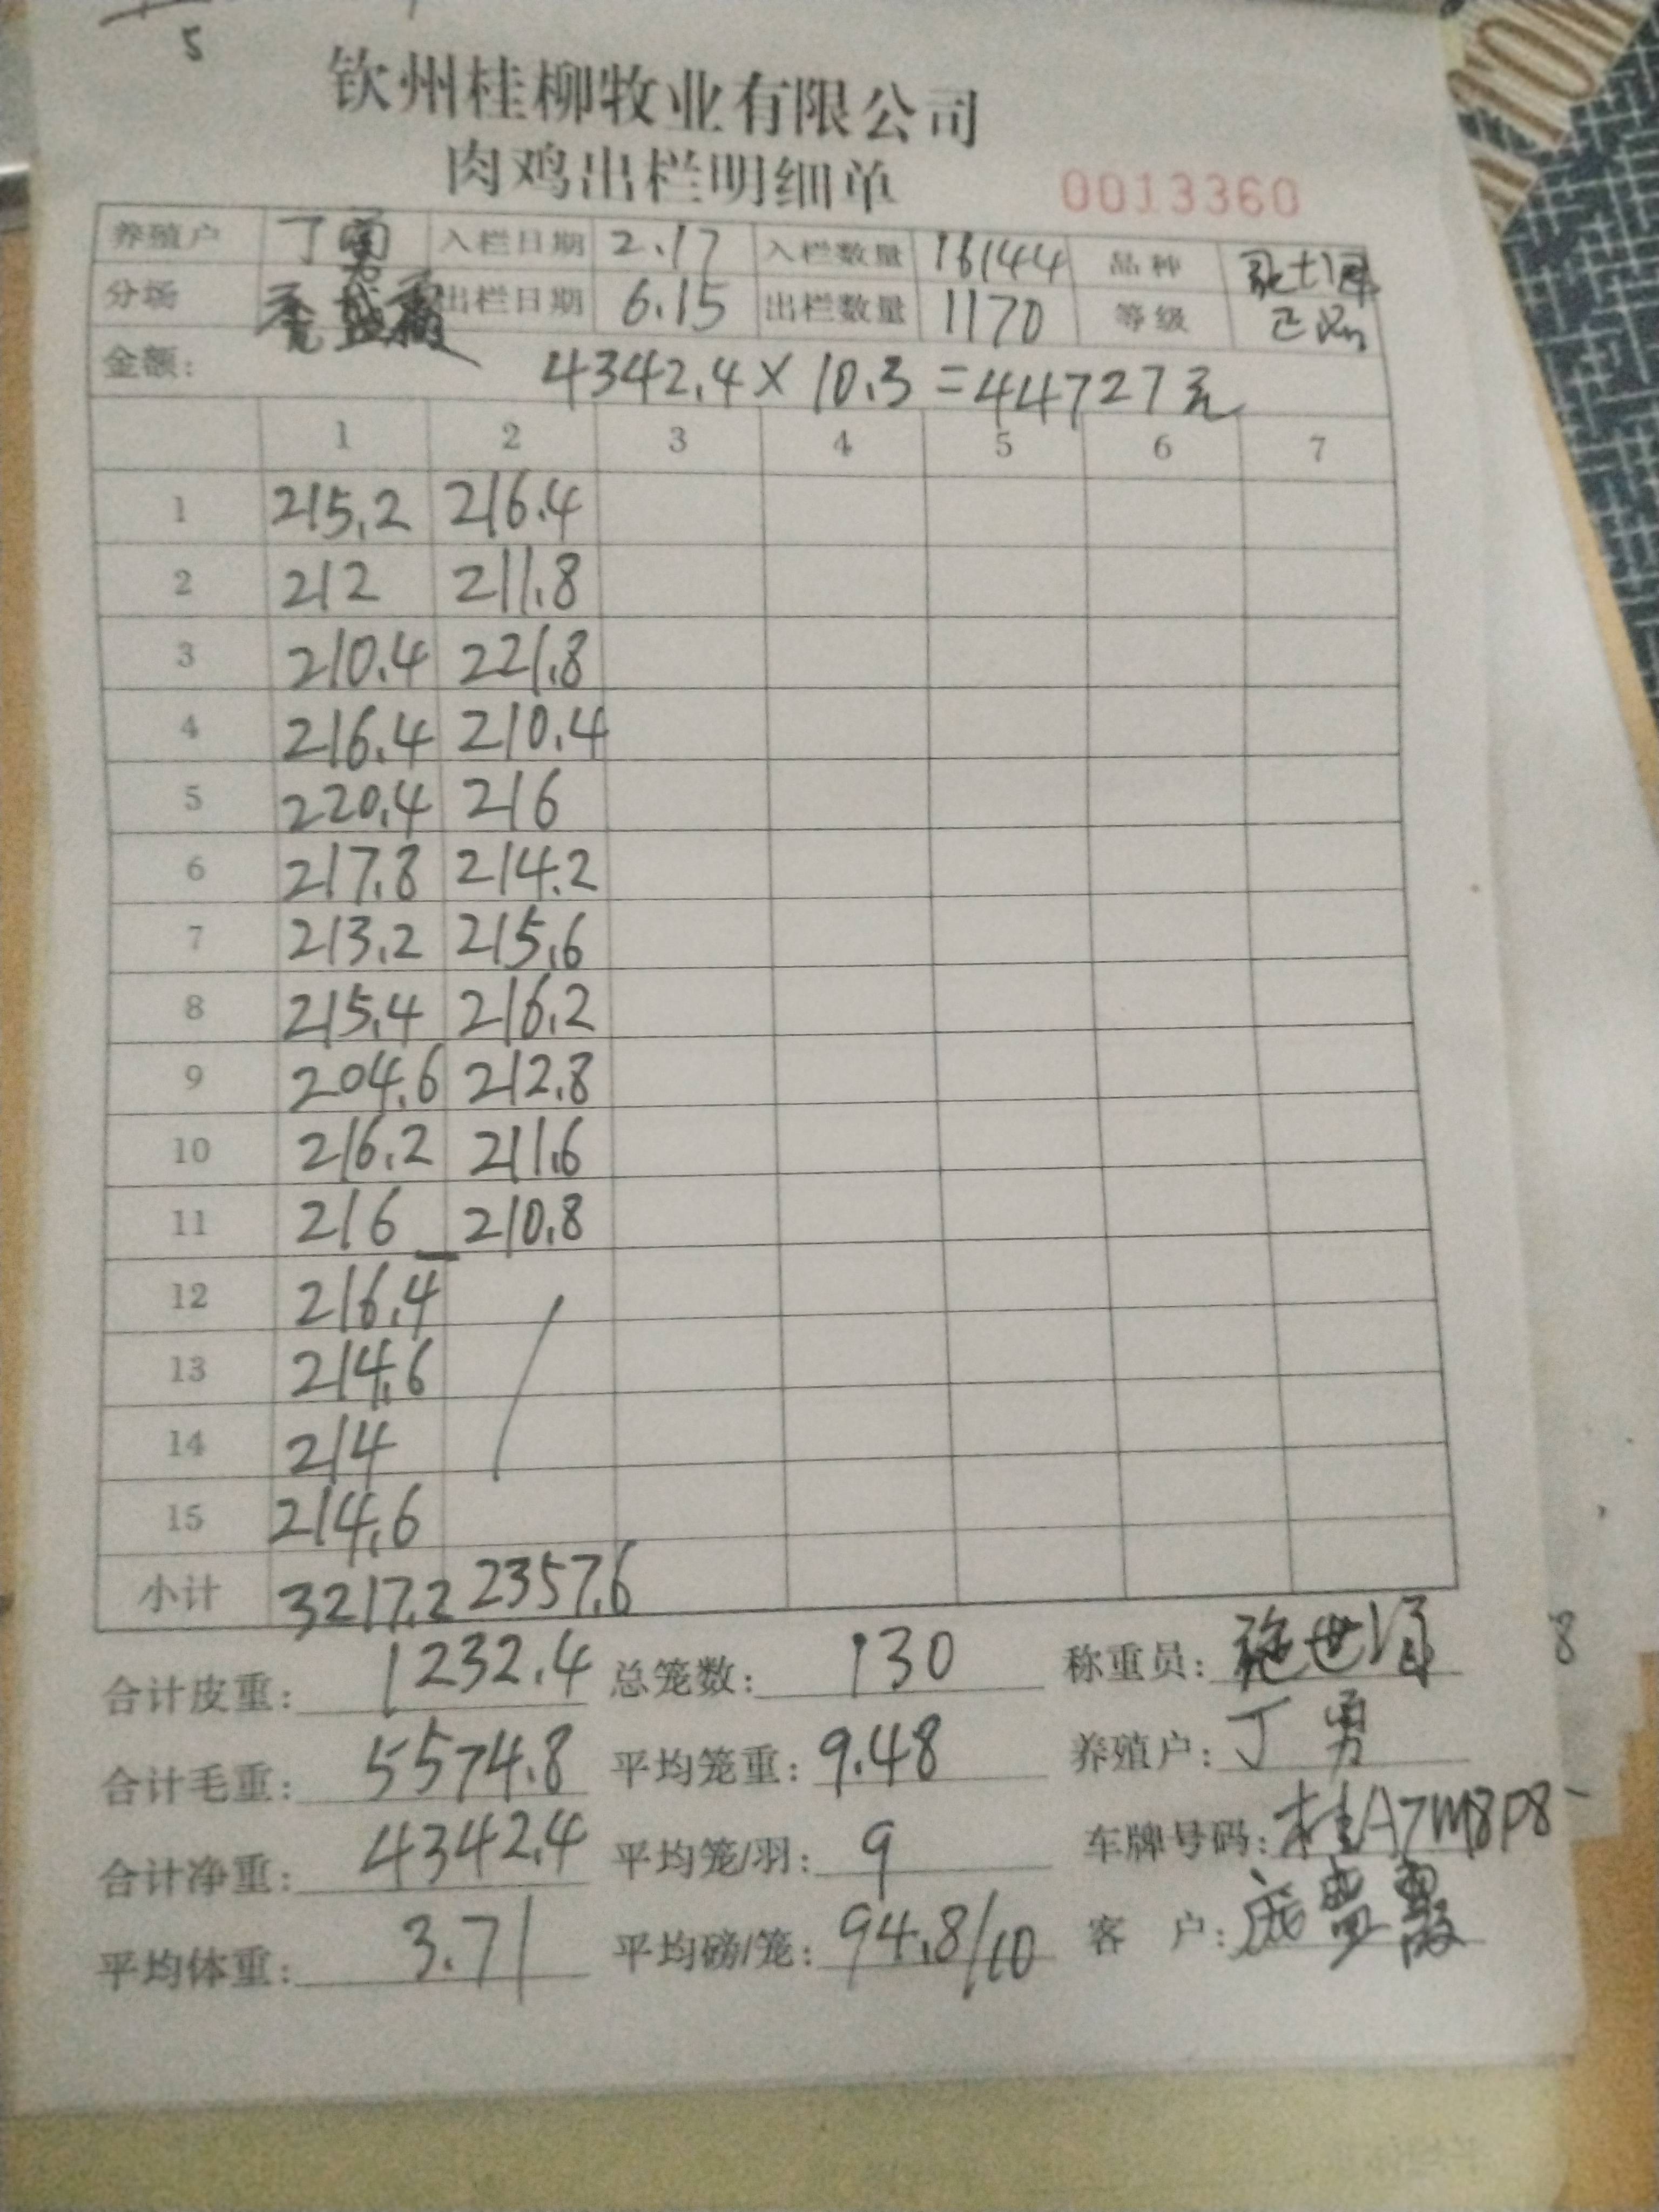 5
钦州桂柳牧业有限公司
肉鸡出栏明细单 0013360
养殖户 丁勇 入栏日期 2.17 入栏数量 16144 品种
分场 出栏日期 6.15 出栏数量 1170 等级 正品
金额: 4342.4×10.3=44727元
1 2 3 4 5 6 7
1 215.2 216.4
2 212 211.8
3 210.4 221.8
4 216.4 210.4
5 220.4 216
6 217.8 214.2
7 213.2 215.6
8 215.4 216.2
9 204.6 212.8
10 216.2 211.6
11 216 210.8
12 216.4
13 214.6
14 214
15 214.6
小计 3217.2 2357.6
合计皮重: 1232.4 总笼数: 130 称重员: 8
合计毛重: 5574.8 平均笼重: 9.48 养殖户: 丁勇
合计净重: 4342.4 平均笼/羽: 9 车牌号码: 桂A7M8P8
平均体重: 3.71 平均磅/笼: 94.8/10 客 户: